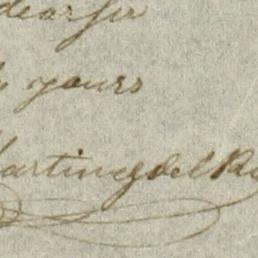 dear sir
yours
Martinez del Ro